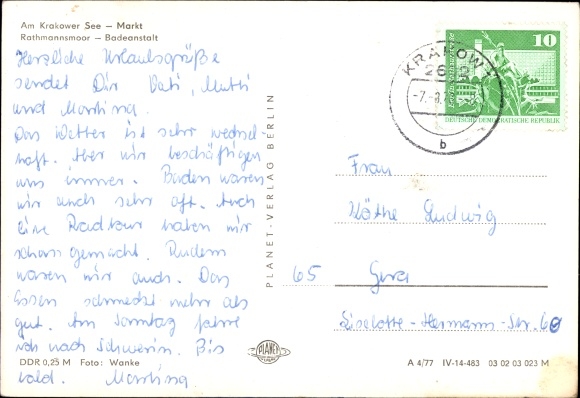 Am Krakower See — Markt
Rathmannsmoor — Badeanstalt
Herzliche Urlaubsgrüße
sendet Dir Vati, Mutti
und
Das Wetter ist sehr wechsel-
haft. Aber wir beschäftigen
uns immer. Baden waren
wir auch sehr oft. Auch
eine Radtour haben wir
schon gemacht. Rudern
waren wir auch. Das
Essen schmeckt mehr als
gut. Am Sonntag fahre
ich nach Schwerin. Bis
DDR 0,25 M Foto: Wanke
bald.
PLANET-VERLAG BERLIN
PLANET
10
DEUTSCHE DEMOKRATISCHE REPUBLIK
KRAKOW
b
Frau
Käthe Ludwig
65 Gera
Liselotte-Hermann-Str. 60
A 4/77 IV-14-483 03 02 03 023 M